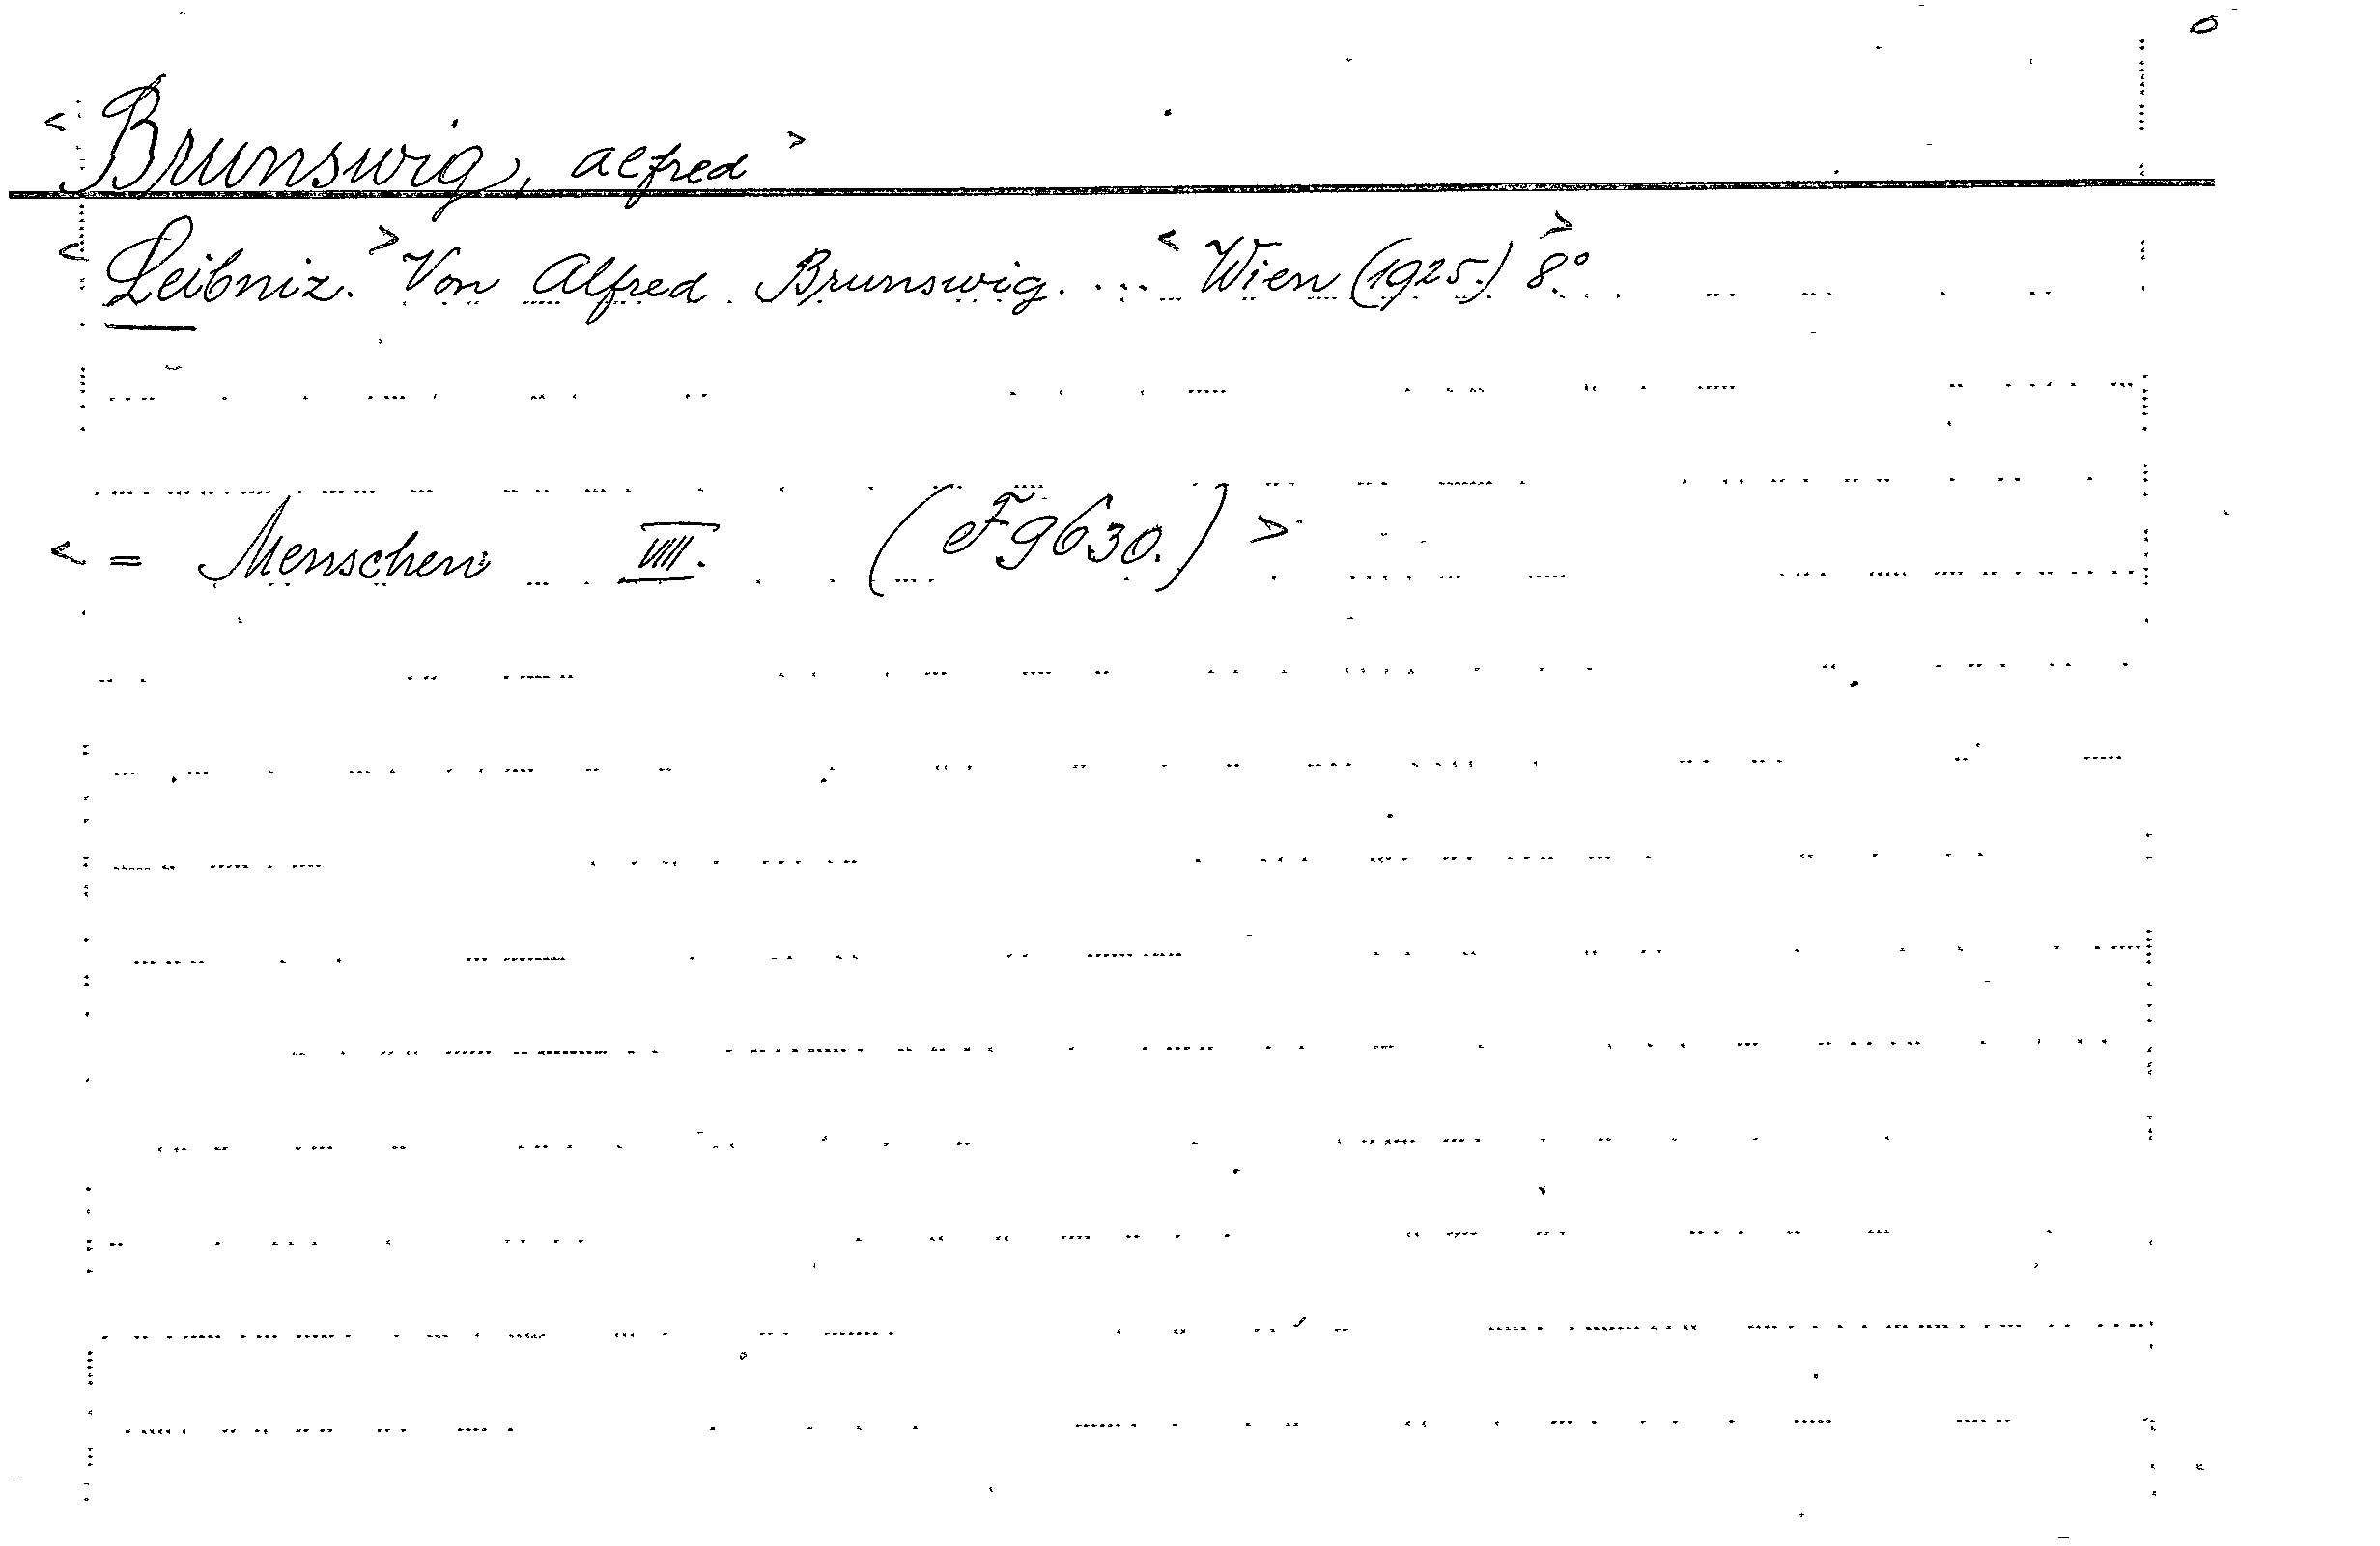 < Brunswig, Alfred >
< Leibniz. > Von Alfred Brunswig. ... < Wien (1925.) 8.° >
< = Menschen VIII. (F9630.) >